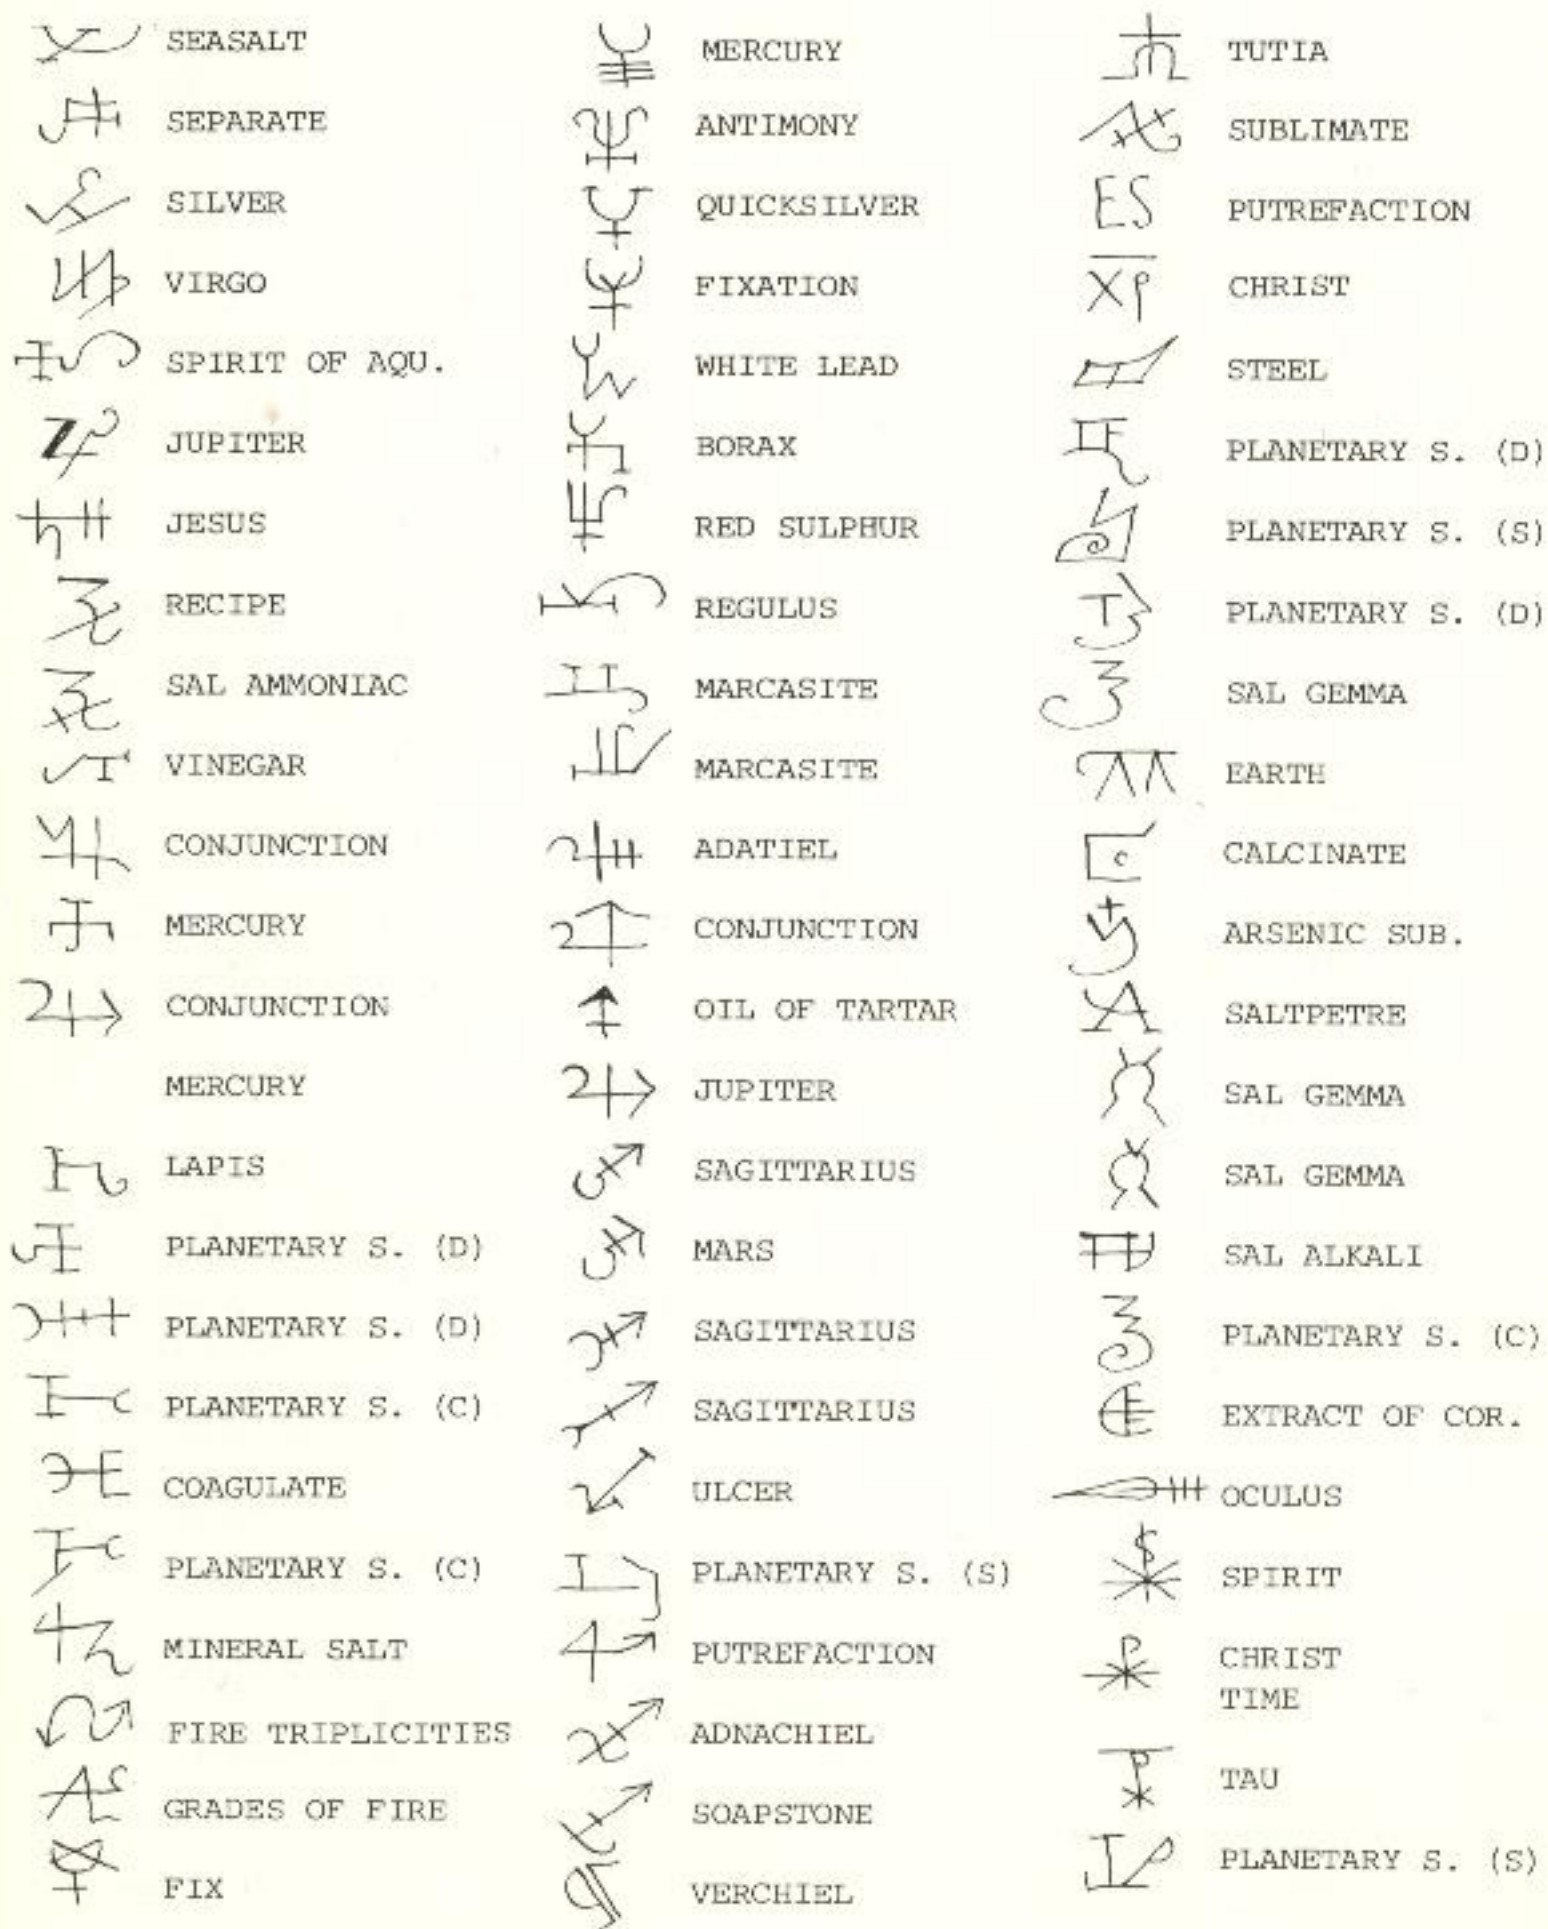 SEASALT
SEPARATE
SILVER
VIRGO
SPIRIT OF AQU.
JUPITER
JESUS
RECIPE
SAL AMMONIAC
VINEGAR
CONJUNCTION
MERCURY
CONJUNCTION
MERCURY
LAPIS
PLANETARY S. (D)
PLANETARY S. (D)
PLANETARY S. (C)
COAGULATE
PLANETARY S. (C)
MINERAL SALT
FIRE TRIPLICITIES
GRADES OF FIRE
FIX
MERCURY
ANTIMONY
QUICKSILVER
FIXATION
WHITE LEAD
BORAX
RED SULPHUR
REGULUS
MARCASITE
MARCASITE
ADATIEL
CONJUNCTION
OIL OF TARTAR
JUPITER
SAGITTARIUS
MARS
SAGITTARIUS
SAGITTARIUS
ULCER
PLANETARY S. (S)
PUTREFACTION
ADNACHIEL
SOAPSTONE
VERCHIEL
TUTIA
SUBLIMATE
ES PUTREFACTION
XP CHRIST
STEEL
PLANETARY S. (D)
PLANETARY S. (S)
PLANETARY S. (D)
SAL GEMMA
EARTH
CALCINATE
ARSENIC SUB.
SALTPETRE
SAL GEMMA
SAL GEMMA
SAL ALKALI
PLANETARY S. (C)
EXTRACT OF COR.
OCULUS
SPIRIT
CHRIST
TIME
TAU
PLANETARY S. (S)